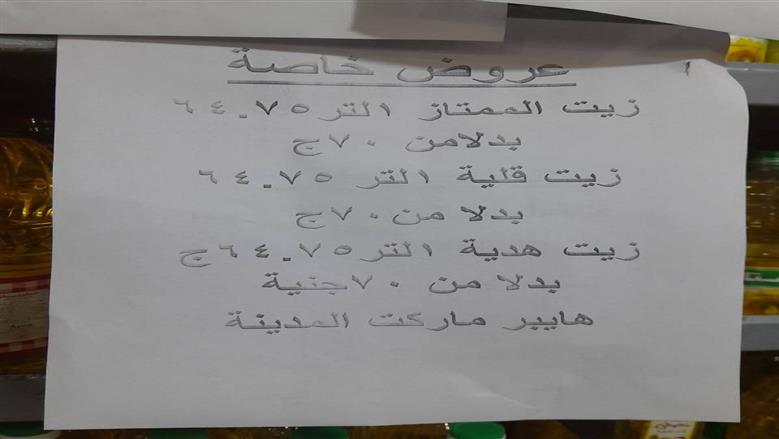 عروض خاصة
زيت الممتاز التر ٦٤.٧٥
بدلامن ٧٠ج
زيت قلية التر ٦٤.٧٥
بدلا من٧٠ج
زيت هدية التر ٦٤.٧٥ج
بدلا من ٧٠جنية
هايبر ماركت المدينة